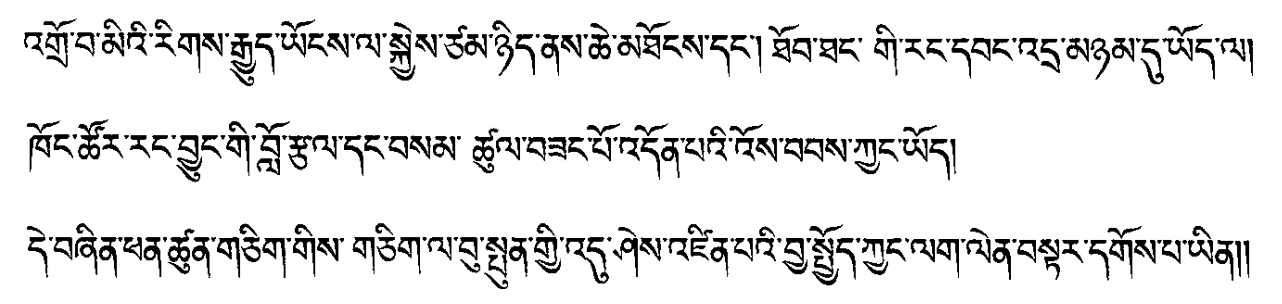 འགྲོ་བ་མིའི་རིགས་རྒྱུད་ཡོངས་ལ་སྐྱེས་ཙམ་ཉིད་ནས་ཆེ་མཐོངས་དང༌། ཐོབ་ཐང་ གི་རང་དབང་འདྲ་མཉམ་དུ་ཡོད་ལ།
ཁོང་ཚོར་རང་བྱུང་གི་བློ་རྩལ་དང་བསམ་ ཚུལ་བཟང་པོ་འདོན་པའི་འོས་བབས་ཀྱང་ཡོད།
དེ་བཞིན་ཕན་ཚུན་གཅིག་གིས་ གཅིག་ལ་བུ་སྤུན་གྱི་འདུ་ཤེས་འཛིན་པའི་བྱ་སྤྱོད་ཀྱང་ལག་ལེན་བསྟར་དགོས་པ་ཡིན།།